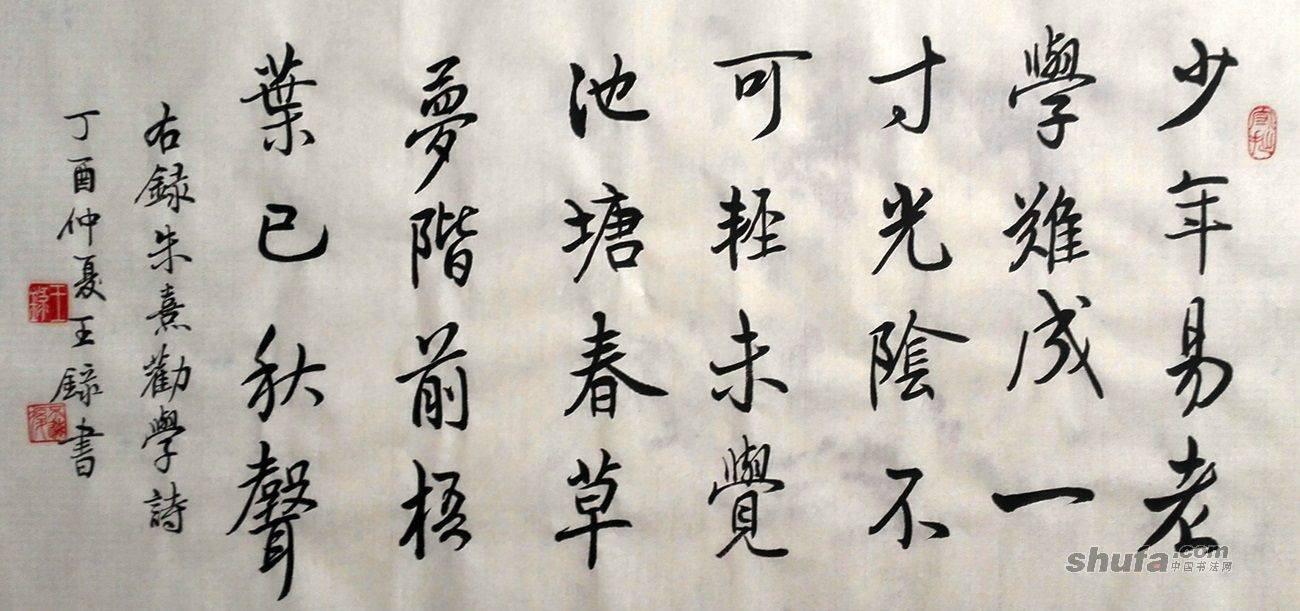 少年易老
學難成一
寸光陰不
可輕未覺
池塘春草
夢階前梧
葉已秋聲
右録朱熹勸學詩
丁酉仲夏王録書
shufa.com
中国书法网